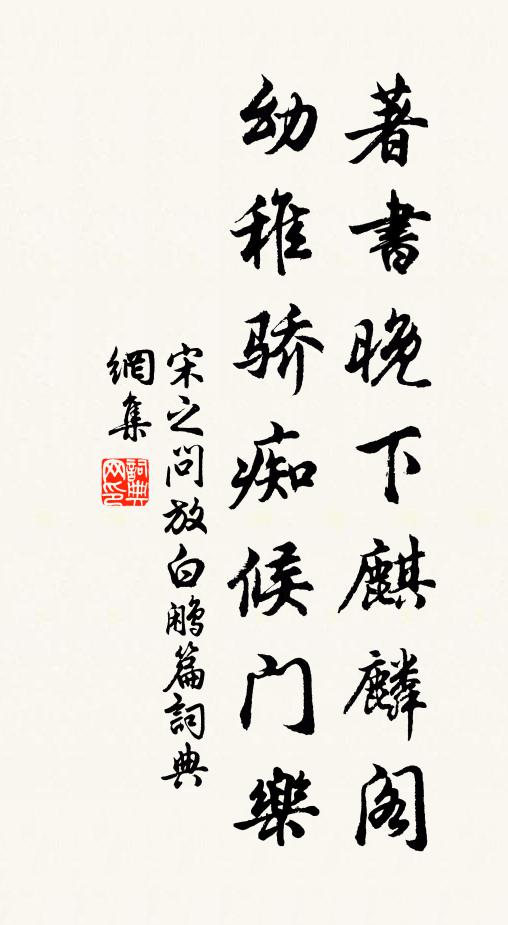 著書晚下麒麟阁
幼稚骄痴候门樂
宋之问放白鹇篇詞典
網集
詞典网印